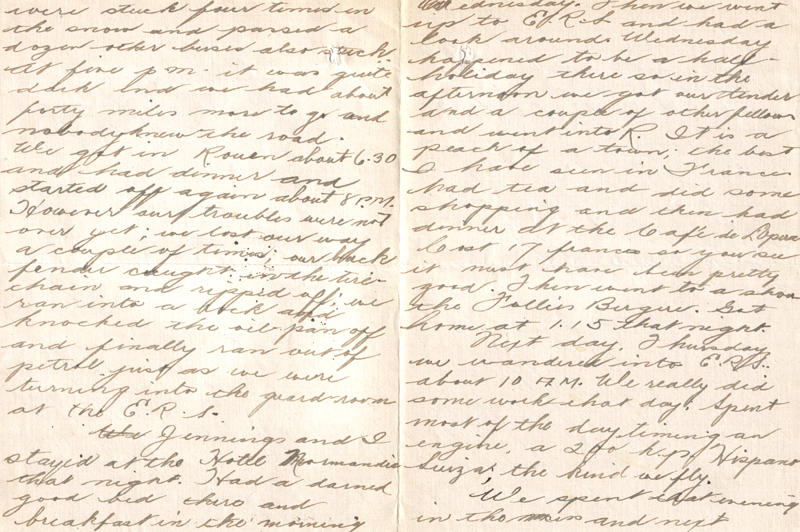 were stuck four times in
the snow and passed a
dozen other buses also stuck.
At five p.m. it was quite
dark and we had about
forty miles more to go and
nobody knew the road.
We got in Rouen about 6.30
and had dinner and
started off again about 8 P.M.
However our troubles were not
over yet; we lost our way
a couple of times; our back
fender caught in the tire-
chain and ripped off; we
ran into a rock and
knocked the oil-pan off
and finally ran out of
petrol just as we were
turning into the guard-room
at the E.R.S.
Jennings and I
stayed at the Hotel Normandie
that night. Had a darned
good bed there and
breakfast in the morning
Wednesday. Then we went
up to E.R.S and had a
look around. Wednesday
happened to be a half-
holiday there so in the
afternoon we got our tender
and a couple of other fellows
and went into R. It is a
peach of a town; the best
I have seen in France.
Had tea and did some
shopping and then had
dinner at the Café de l'Opera
Cost 17 francs so you see
it must have been pretty
good. Then went to a show
the Follies Bergere. Got
home at 1.15 that night.
Next day, Thursday
we wandered into E.R.S.
about 10 A.M. We really did
some work that day. Spent
most of the day timing an
engine, a 200 h.p. Hispano
Suiza the kind we fly.
We spent that evening
in the mess and next